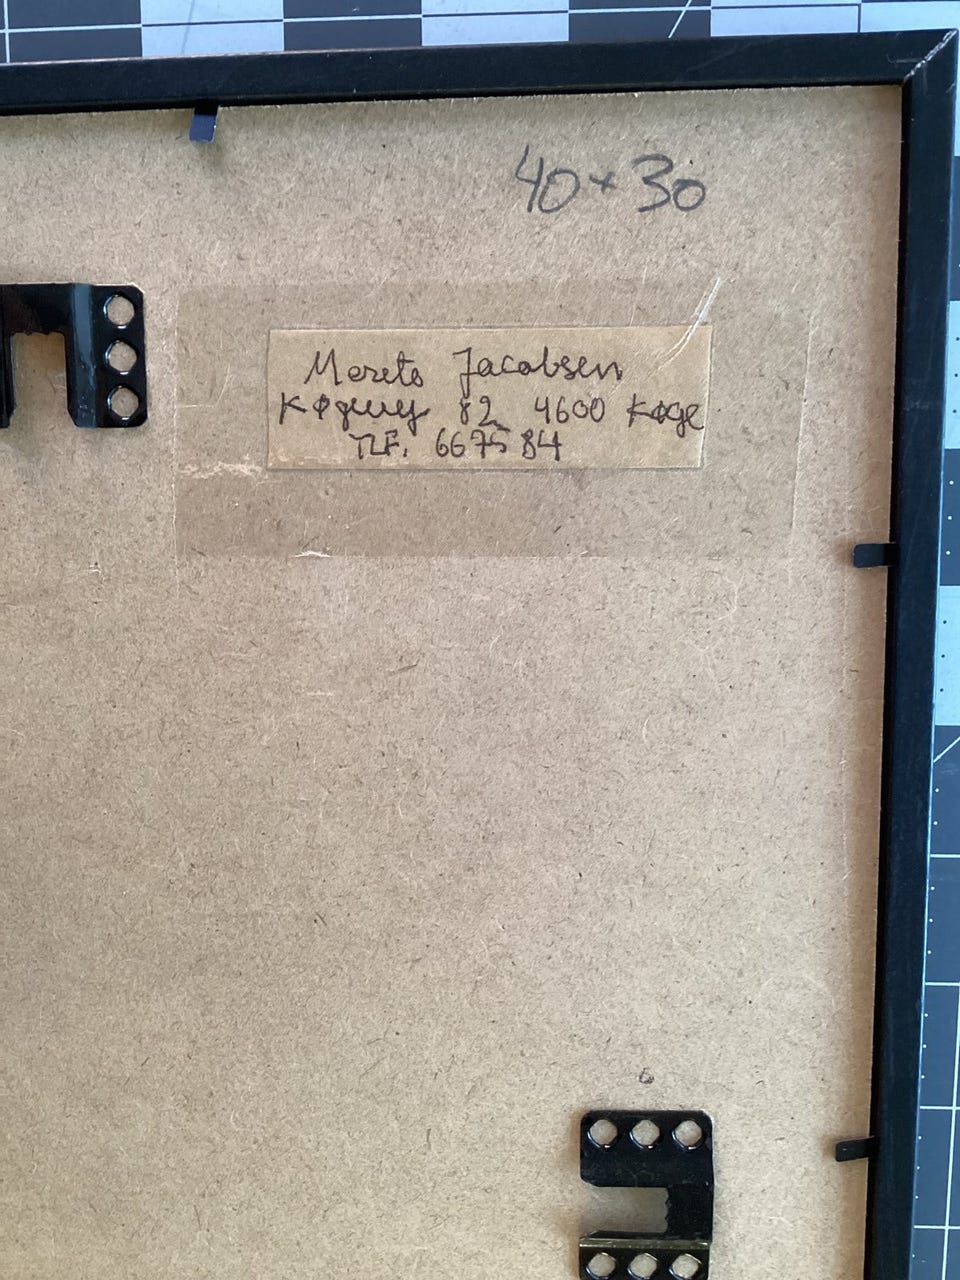 40 x 30
Merete Jacobsen
Køgevej 82 4600 Køge
TLF. 667584